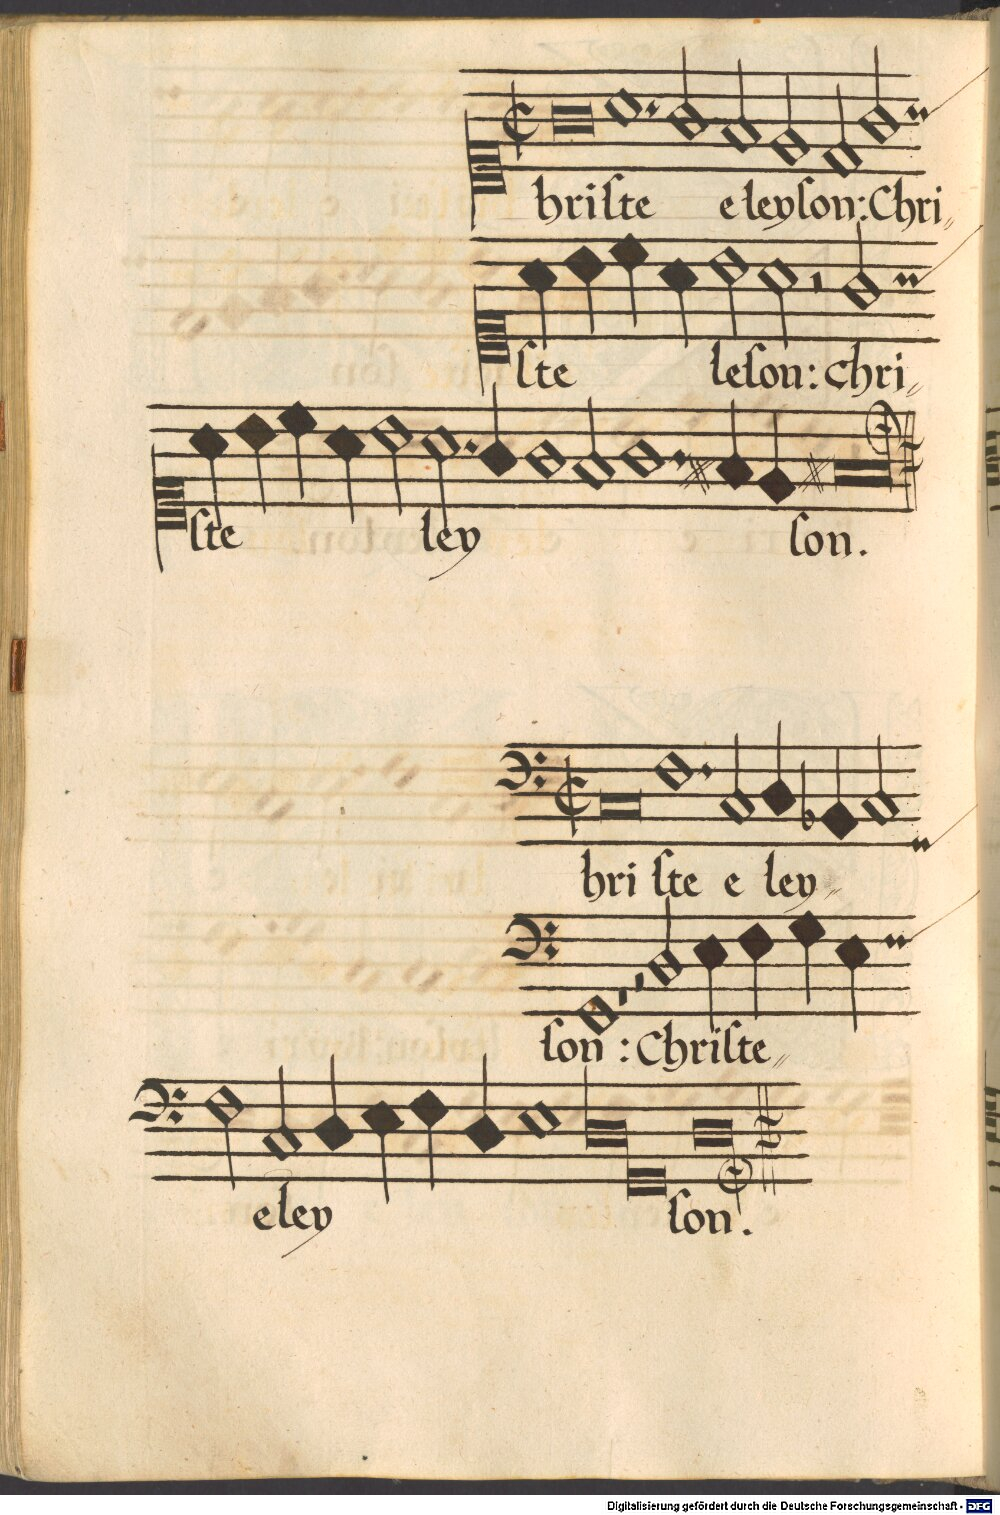 hriste eleyson: Chri〃
ste leson: chri〃
ste ley son.
hri ste e ley〃
son: Christe〃
eley son.
Digitalisierung gefördert durch die Deutsche Forschungsgemeinschaft - DFG